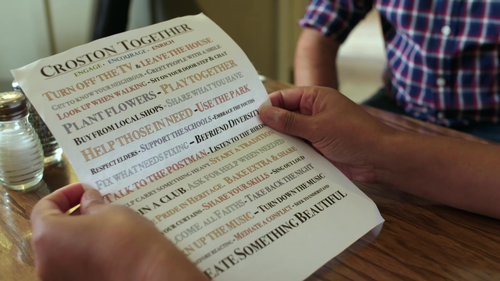 Croston Together
Engage - Encourage - Enrich
Turn off the TV - Leave the house
Get to know your neighbours - Greet people with a smile
Look up when walking - Sit on your doorstep & chat
Plant flowers - Play together
Buy from local shops - Share what you have
Help those in need - Use the park
Respect elders - Support the schools - Embrace the
Fix what needs fixing - Befriend diversity
Talk to the postman - Listen to the
Help carry something heavy - Start a tradition
Join a club - Ask for help when needed
Take pride in heritage - Bake extra & share
your curtains - Share your skills - Sing out loud
all faiths - Take back the night
up the music - Turn down the music
before reacting - Mediate a conflict - Seek to understand
Create something beautiful